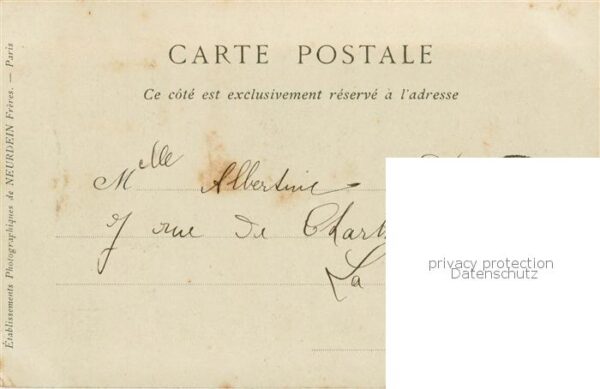 CARTE POSTALE
Ce côté est exclusivement réservé à l'adresse
Établissements Photographiques de NEURDEIN Frères. — Paris
Melle Albertine
7 rue de
La
privacy protection
Datenschutz